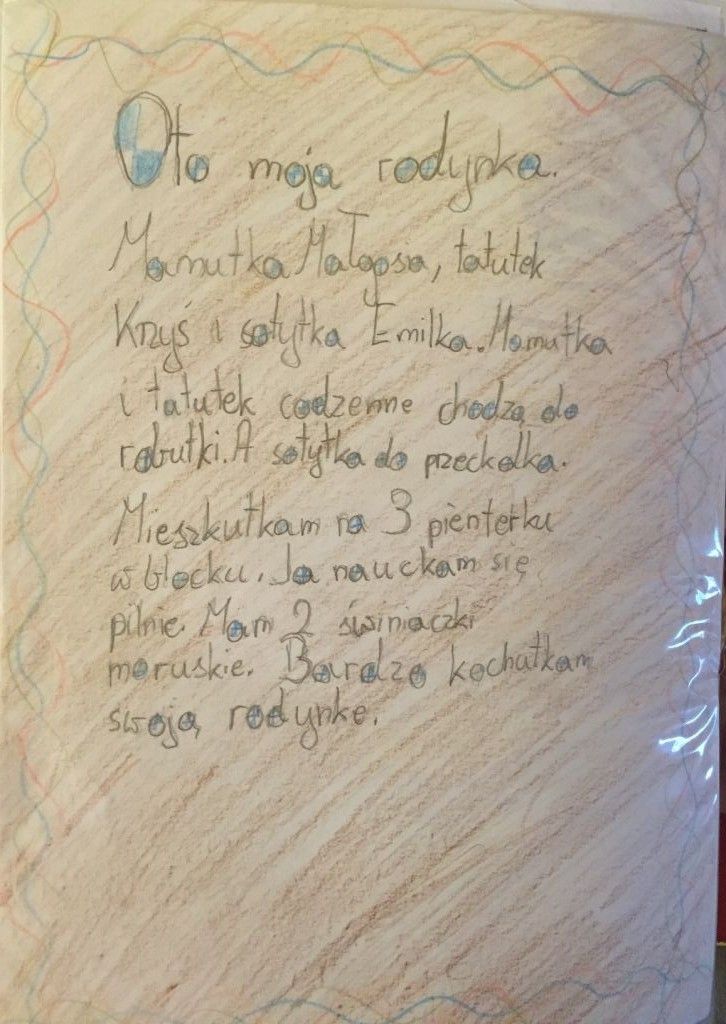 Oto moja rodynka.
Mamutka Małopsia, tatutek
Krzyś i sotytka Emilka. Mamutka
i tatutek codzenne chodzą do
robutki. A sotytka do przeckolka.
Mieszkutkam na 3 pienterku
w blocku. Ja nauckam się
pilnie. Mam 2 świniaczki
moruskie. Bardzo kochutkam
swoją rodynke.